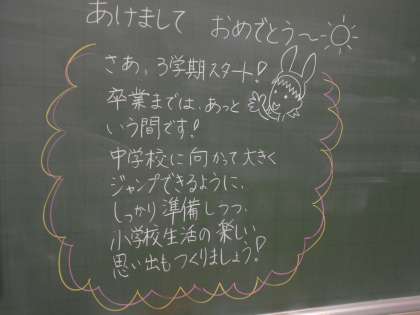 あけまして おめでとう〜
さあ、3学期スタート!
卒業までは、あっと
いう間です!
中学校に向かって大きく
ジャンプできるように、
しっかり準備しつつ、
小学校生活の楽しい
思い出もつくりましょう!